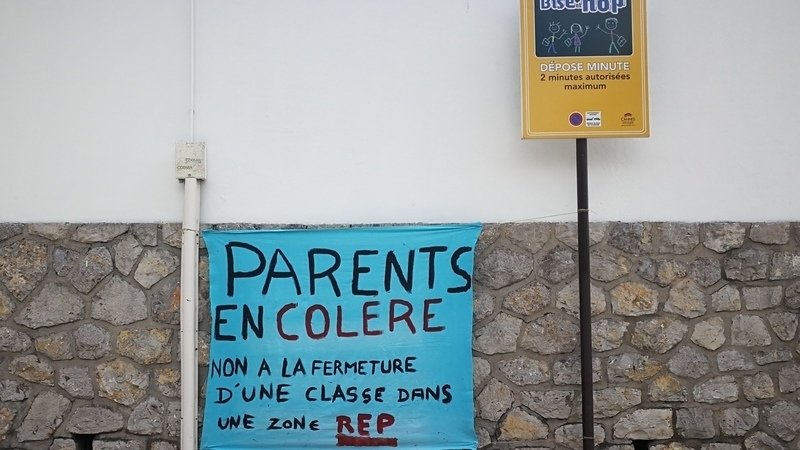 Bise hop
DÉPOSE MINUTE
2 minutes autorisées
maximum
CANNES
PARENTS
EN COLERE
NON A LA FERMETURE
D'UNE CLASSE DANS
UNE ZONE REP